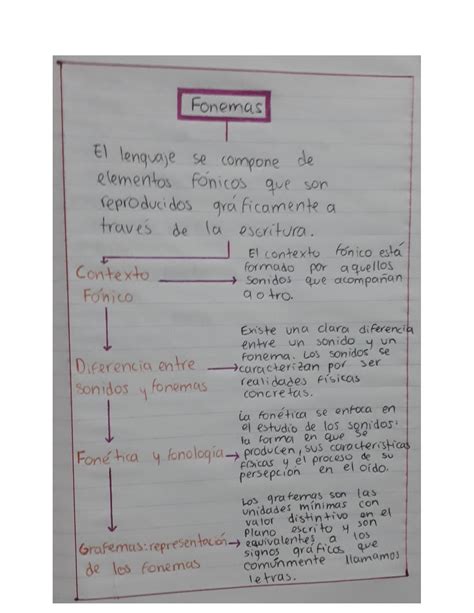 Fonemas
El lenguaje se compone de
elementos fónicos que son
reproducidos gráficamente a
través de la escritura.
Contexto
Fónico
El contexto fónico está
formado por aquellos
sonidos que acompañan
a otro.
Diferencia entre
sonidos y fonemas
Existe una clara diferencia
entre un sonido y un
fonema. Los sonidos se
caracterizan por ser
realidades físicas
concretas.
Fonética y fonología
La fonética se enfoca en
el estudio de los sonidos:
la forma en que se
producen, sus características
físicas y el proceso de su
persepción en el oído.
Grafemas: representación
de los fonemas
Los grafemas son las
unidades mínimas con
valor distintivo en el
plano escrito y son
equivalentes a los
signos gráficos que
comúnmente llamamos
letras.